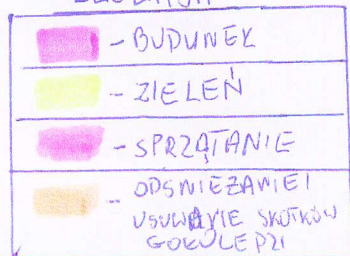 - BUDUNEK
- ZIELEŃ
- SPRZĄTANIE
- ODSNIEZANIE I
USUWANIE SKUTKÓW
GOŁOLEDZI